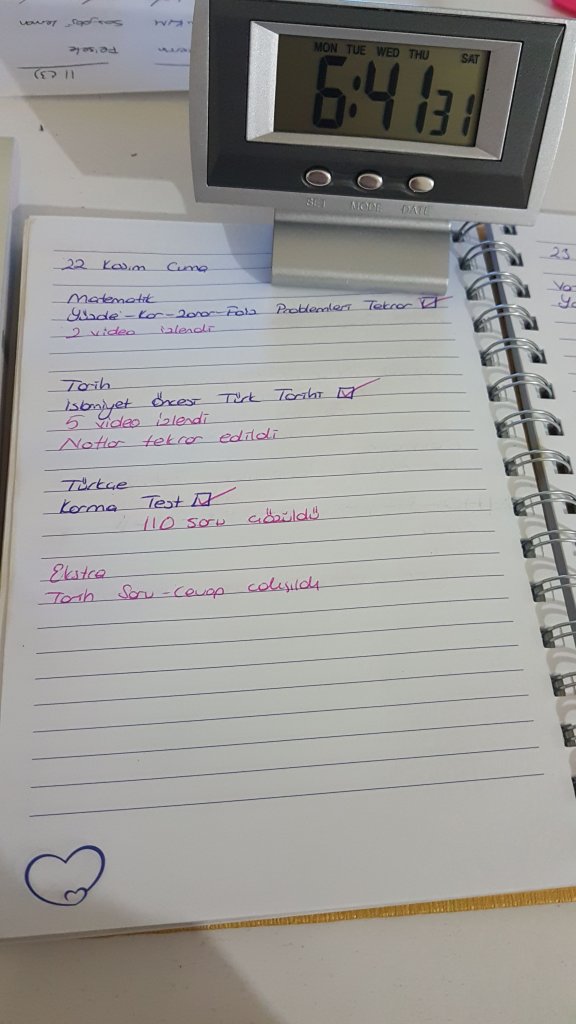 MON TUE WED THU SAT
6:41 31
SET MODE DATE
22 Kasım Cuma
Matematik
Yüzde-Kar-Zarar-Faiz Problemleri Tekrar ☑
2 video izlendi
Tarih
İslamiyet Öncesi Türk Tarihi ☑
5 video izlendi
Notlar tekrar edildi
Türkçe
Karma Test ☑
110 soru çözüldü
Ekstra
Tarih Soru-Cevap çalışıldı
23